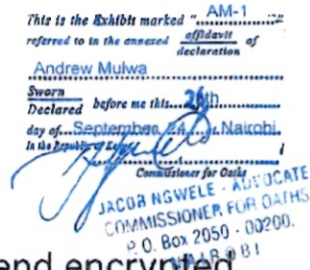 This is the Exhibit marked "AM-1
referred to in the annexed affidavit of
declaration
Andrew Mulwa
Sworn
Declared before me this 26th
day of September, 24 at Nairobi
In the Republic of
Commissioner for Oaths
JACOB NGWELE - ADVOCATE
COMMISSIONER FOR OATHS
P.O. Box 2050 - 00200.
NAIROBI
end encrypted